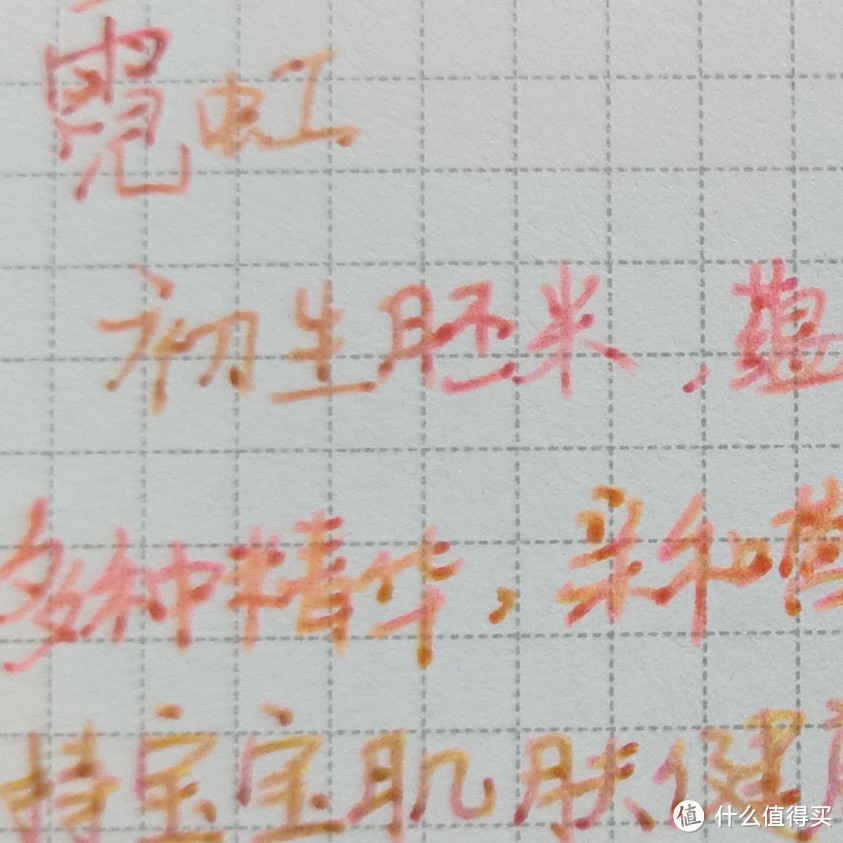 霓虹
初生胚米，蕴
多种精华，亲和营
持宝宝肌肤健康
值 什么值得买